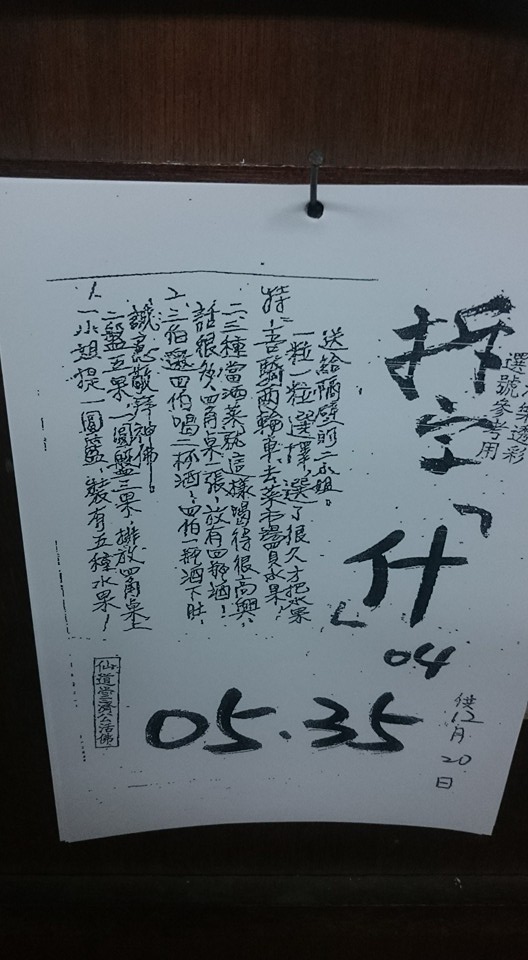 透彩
選號參考用
拆字「什」
04
供12月20日
05.35
1、一小姐提一圓籃,裝有五種水果!
二盤五果,一圓盤三果,排放四角桌上
誠意敬拜神佛。
2、三伯邀四伯喝二杯酒,四伯一瓶酒下肚,
話很多,四角桌一張,放有四瓶酒!
二、三種當酒菜就這樣喝得很高興,
特:二哥騎兩輪車去菜市場買水果,
一粒一粒選擇,選了很久才把水果
送給隔壁的二小姐。
仙道堂濟公活佛